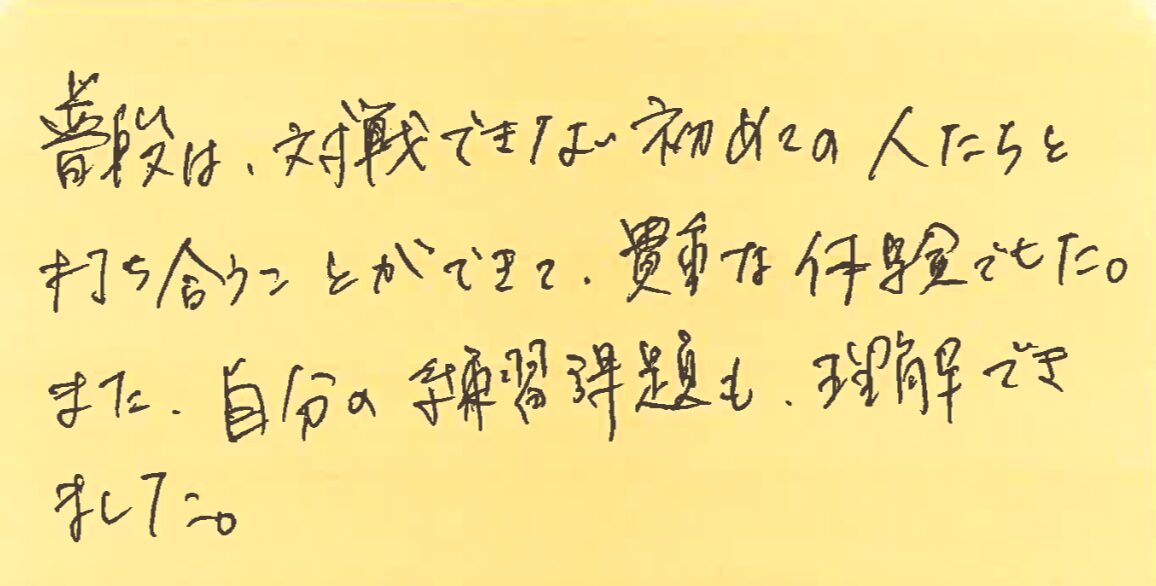 普段は、対戦できない初めての人たちと
打ち合うことができて、貴重な体験でした。
また、自分の練習課題も、理解でき
ました。